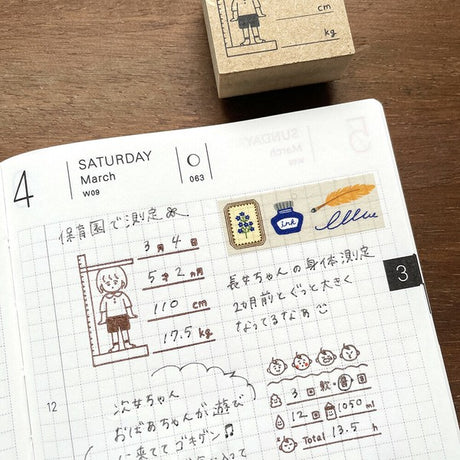 cm
kg
4
SATURDAY
March
W09
063
SUNDAY
March
5
保育園で測定
3月4日
5才2ヵ月
110 cm
17.5 kg
ink
長女ちゃんの身体測定
2ヵ月前とぐっと大きく
なってるなぁ
3
12
次女ちゃん
おばあちゃんが遊び
に来ててゴキゲン♫
3回 軟・普・固
12回 1050 ml
Total 13.5 h